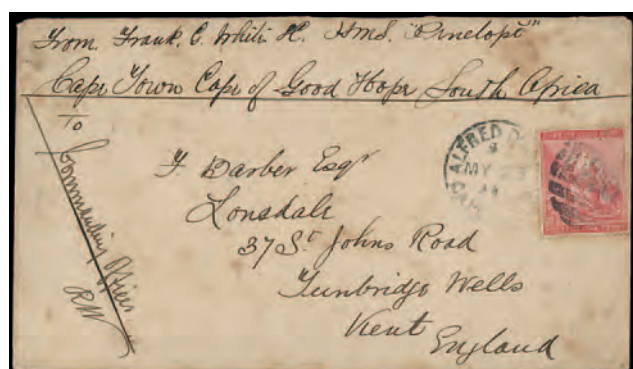 From. Frank. C. White H. HMS. "Penelope"
Cape Town Cape of Good Hope South Africa
To
Commanding Officer
RN
F. Barber Esqr
Lonsdale
37 St Johns Road
Tunbridge Wells
Kent
England
ALFRED D
MY 23